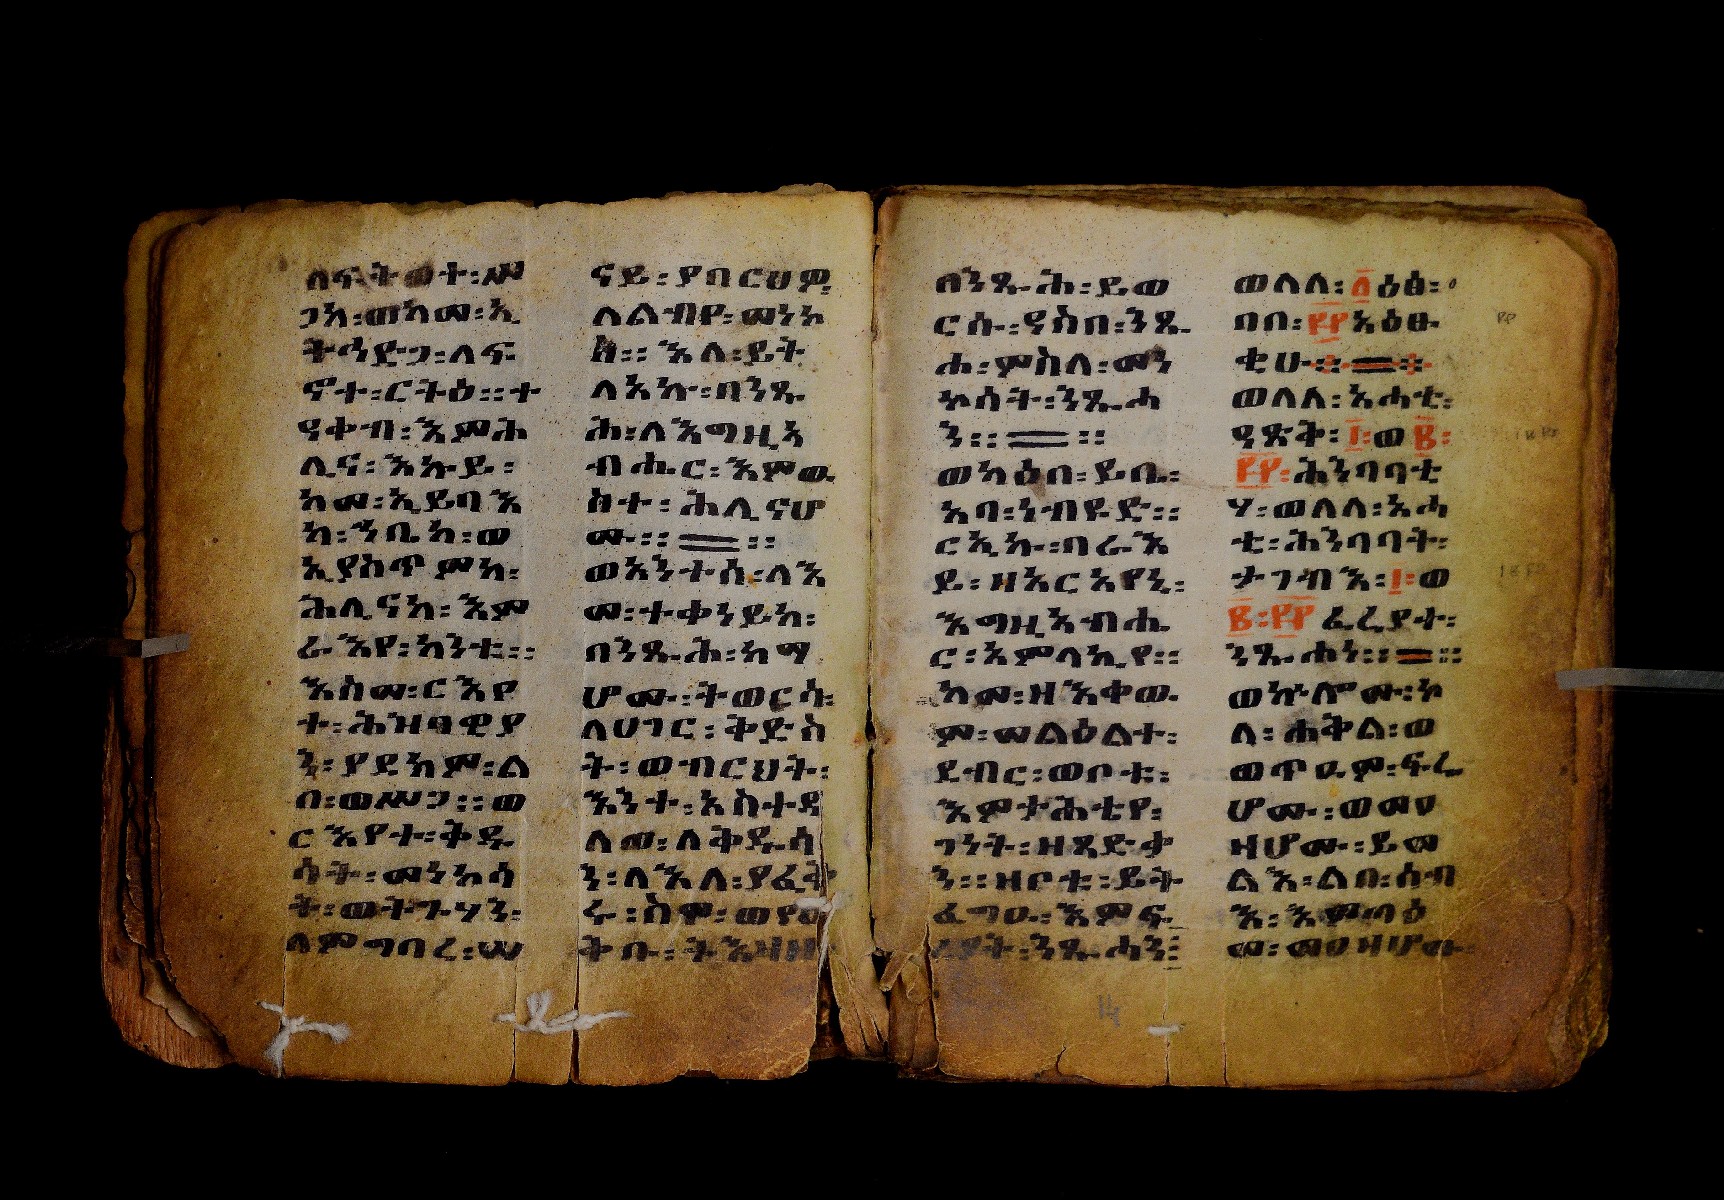 ለፍትወተ፡ሥ
ጋከ፡ወከመ፡ኢ
ትኅድጋ፡ለፍ
ኖተ፡ርትዕ፡፡ተ
ዓቀብ፡እምሕ
ሊና፡እኩይ፡
ከመ፡ኢይባእ
ኀቤከ፡ወ
ኢያስጥምከ፡
ሕሊናከ፡እም
ራእየ፡ከንቱ፡፡
እስመ፡ርእየ
ተ፡ሕዝባዊያ
ን፡ያደክም፡ል
በ፡ወሥጋ፡፡ወ
ርእየተ፡ቅዱ
ሳት፡መነኮሳ
ት፡ወትጉሃን፡
ለምግባረ፡ሠ
ናይ፡ያበርህዎ
ለልብየ፡መነኮ
ስ፡፡እለ፡ይት
ለአኩ፡በንጹ
ሕ፡ለእግዚአ
ብሔር፡እምው
ስተ፡ሕሊናሆ
ሙ፡፡ ፡፡
ወአንተሰ፡ለእ
መ፡ተቀንይከ፡
በንጹሕ፡ከማ
ሆሙ፡ትወርስ፡
ለሀገር፡ቅድስ
ት፡ወብርህት፡
እንተ፡አስተዳ
ለወ፡ለቅዱሳ
ን፡ለእለ፡ያፈቅ
ሩ፡ስሞ፡ወየዐ
ቅቡ፡ትእዛዞ
በንጹሕ፡ይወ
ርሱ፡ዓስበ፡ንጹ
ሐ፡ምስለ፡መነ
ኮሳት፡ንጹሓ
ን፡፡ ፡፡
ወካዕበ፡ይቤ፡
አባ፡ነብዩድ፡፡
ርኢኩ፡በራእ
ይ፡ዘአርአየኒ፡
እግዚአብሔ
ር፡አምላኪየ፡፡
ከመ፡ዘእቀው
ም፡መልዕልተ፡
ደብር፡ወቦቱ፡
እምታሕቲየ፡
ገነት፡ዘጻድቃ
ን፡፡ዘቦቱ፡ይት
ፈግዑ፡እምፍ
ሬያት፡ንጹሐን፡
ወለለ፡፩ዕፅ፡
ቦቡ፡፼አዕፁ
ቂሁ፡፡ ፡፡
ወለለ፡አሐቲ፡
ዓጽቅ፡፲፡ወ፪፡
፼፡ሕንባባቲ
ሃ፡ወለለ፡አሐ
ቲ፡ሕንባባት፡
ታገብእ፡፲፡ወ
፪፡፼ፈሬያተ፡
ንጹሐነ፡፡ ፡፡
ወኵሎሙ፡ከ
ለ፡ሐቅል፡ወ
ወጥዑም፡ፍሬ
ሆሙ፡ወመዐ
ዛሆሙ፡ይመ
ልእ፡ልበ፡ሰብ
እ፡እምጣዕ
መ፡መዐዛሆሙ